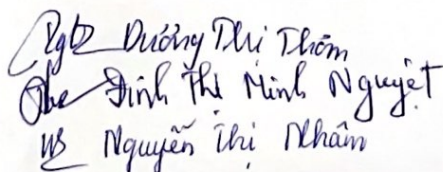 Dương Thị Thơm
Đinh Thị Minh Nguyệt
Nguyễn Thị Nhâm